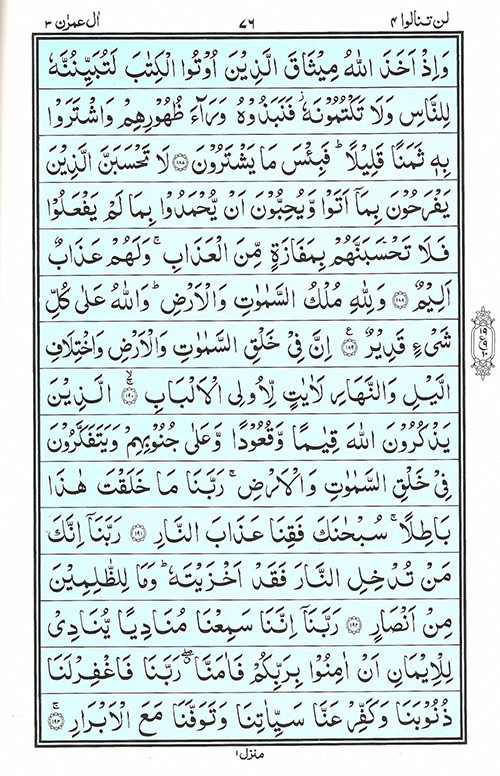 لن تنالوا ۴ ۷۶ اٰل عمرٰن ۳
وَاِذْ اَخَذَ اللّٰهُ مِيْثَاقَ الَّذِيْنَ اُوْتُوا الْكِتٰبَ لَتُبَيِّنُنَّهٗ
لِلنَّاسِ وَلَا تَكْتُمُوْنَهٗ ؗ فَنَبَذُوْهُ وَرَآءَ ظُهُوْرِهِمْ وَاشْتَرَوْا
بِهٖ ثَمَنًا قَلِيْلًا ؕ فَبِئْسَ مَا يَشْتَرُوْنَ ﴿۱۸۷﴾ لَا تَحْسَبَنَّ الَّذِيْنَ
يَفْرَحُوْنَ بِمَاۤ اَتَوْا وَّيُحِبُّوْنَ اَنْ يُّحْمَدُوْا بِمَا لَمْ يَفْعَلُوْا
فَلَا تَحْسَبَنَّهُمْ بِمَفَازَةٍ مِّنَ الْعَذَابِ ۚ وَلَهُمْ عَذَابٌ
اَلِيْمٌ ﴿۱۸۸﴾ وَلِلّٰهِ مُلْكُ السَّمٰوٰتِ وَالْاَرْضِ ؕ وَاللّٰهُ عَلٰى كُلِّ
شَىْءٍ قَدِيْرٌ ﴿۱۸۹﴾ ع اِنَّ فِىْ خَلْقِ السَّمٰوٰتِ وَالْاَرْضِ وَاخْتِلَافِ
الَّيْلِ وَالنَّهَارِ لَاٰيٰتٍ لِّاُولِى الْاَلْبَابِ ﴿۱۹۰﴾ ۚۙ الَّذِيْنَ
يَذْكُرُوْنَ اللّٰهَ قِيٰمًا وَّقُعُوْدًا وَّعَلٰى جُنُوْبِهِمْ وَيَتَفَكَّرُوْنَ
فِىْ خَلْقِ السَّمٰوٰتِ وَالْاَرْضِ ۚ رَبَّنَا مَا خَلَقْتَ هٰذَا
بَاطِلًا ۚ سُبْحٰنَكَ فَقِنَا عَذَابَ النَّارِ ﴿۱۹۱﴾ رَبَّنَاۤ اِنَّكَ
مَنْ تُدْخِلِ النَّارَ فَقَدْ اَخْزَيْتَهٗ ؕ وَمَا لِلظّٰلِمِيْنَ
مِنْ اَنْصَارٍ ﴿۱۹۲﴾ رَبَّنَاۤ اِنَّنَا سَمِعْنَا مُنَادِيًا يُّنَادِىْ
لِلْاِيْمَانِ اَنْ اٰمِنُوْا بِرَبِّكُمْ فَاٰمَنَّا ۖ رَبَّنَا فَاغْفِرْ لَنَا
ذُنُوْبَنَا وَكَفِّرْ عَنَّا سَيِّاٰتِنَا وَتَوَفَّنَا مَعَ الْاَبْرَارِ ۚ ﴿۱۹۳﴾
منزل ۱